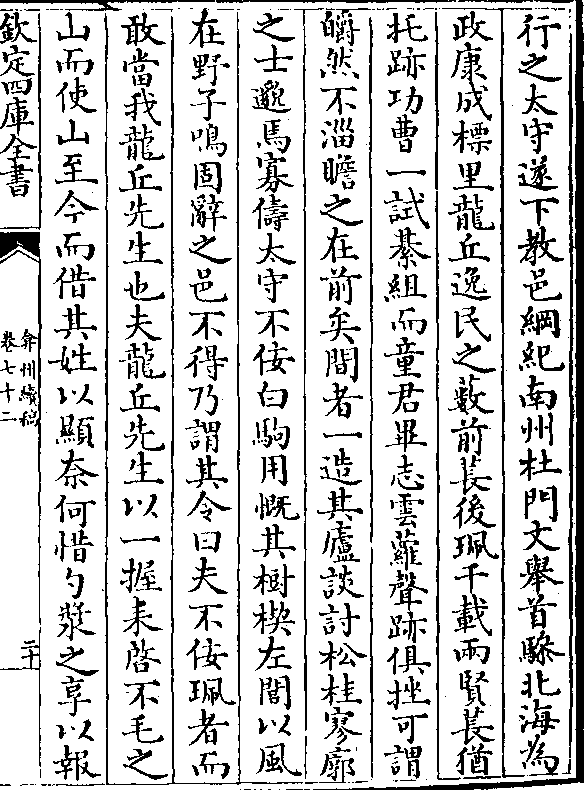 行之太守遂下教邑綱紀南州杜門文舉首驂北海為
政康成標里龍丘逸民之藪前萇後珮千載兩賢萇猶
托跡功曹一試綦組而童君畢志雲蘿聲跡俱挫可謂
皭然不淄瞻之在前矣間者一造其廬談討松桂寥廓
之士邈焉寡儔太守不佞白駒用慨其樹楔左閭以風
在野子鳴固辭之邑不得乃謂其令曰夫不佞珮者而
敢當我龍丘先生也夫龍丘先生以一握耒啓不毛之
山而使山至今而借其姓以顯奈何惜勺漿之享以報
欽定四庫全書
弇州續稿
卷七十二
二十